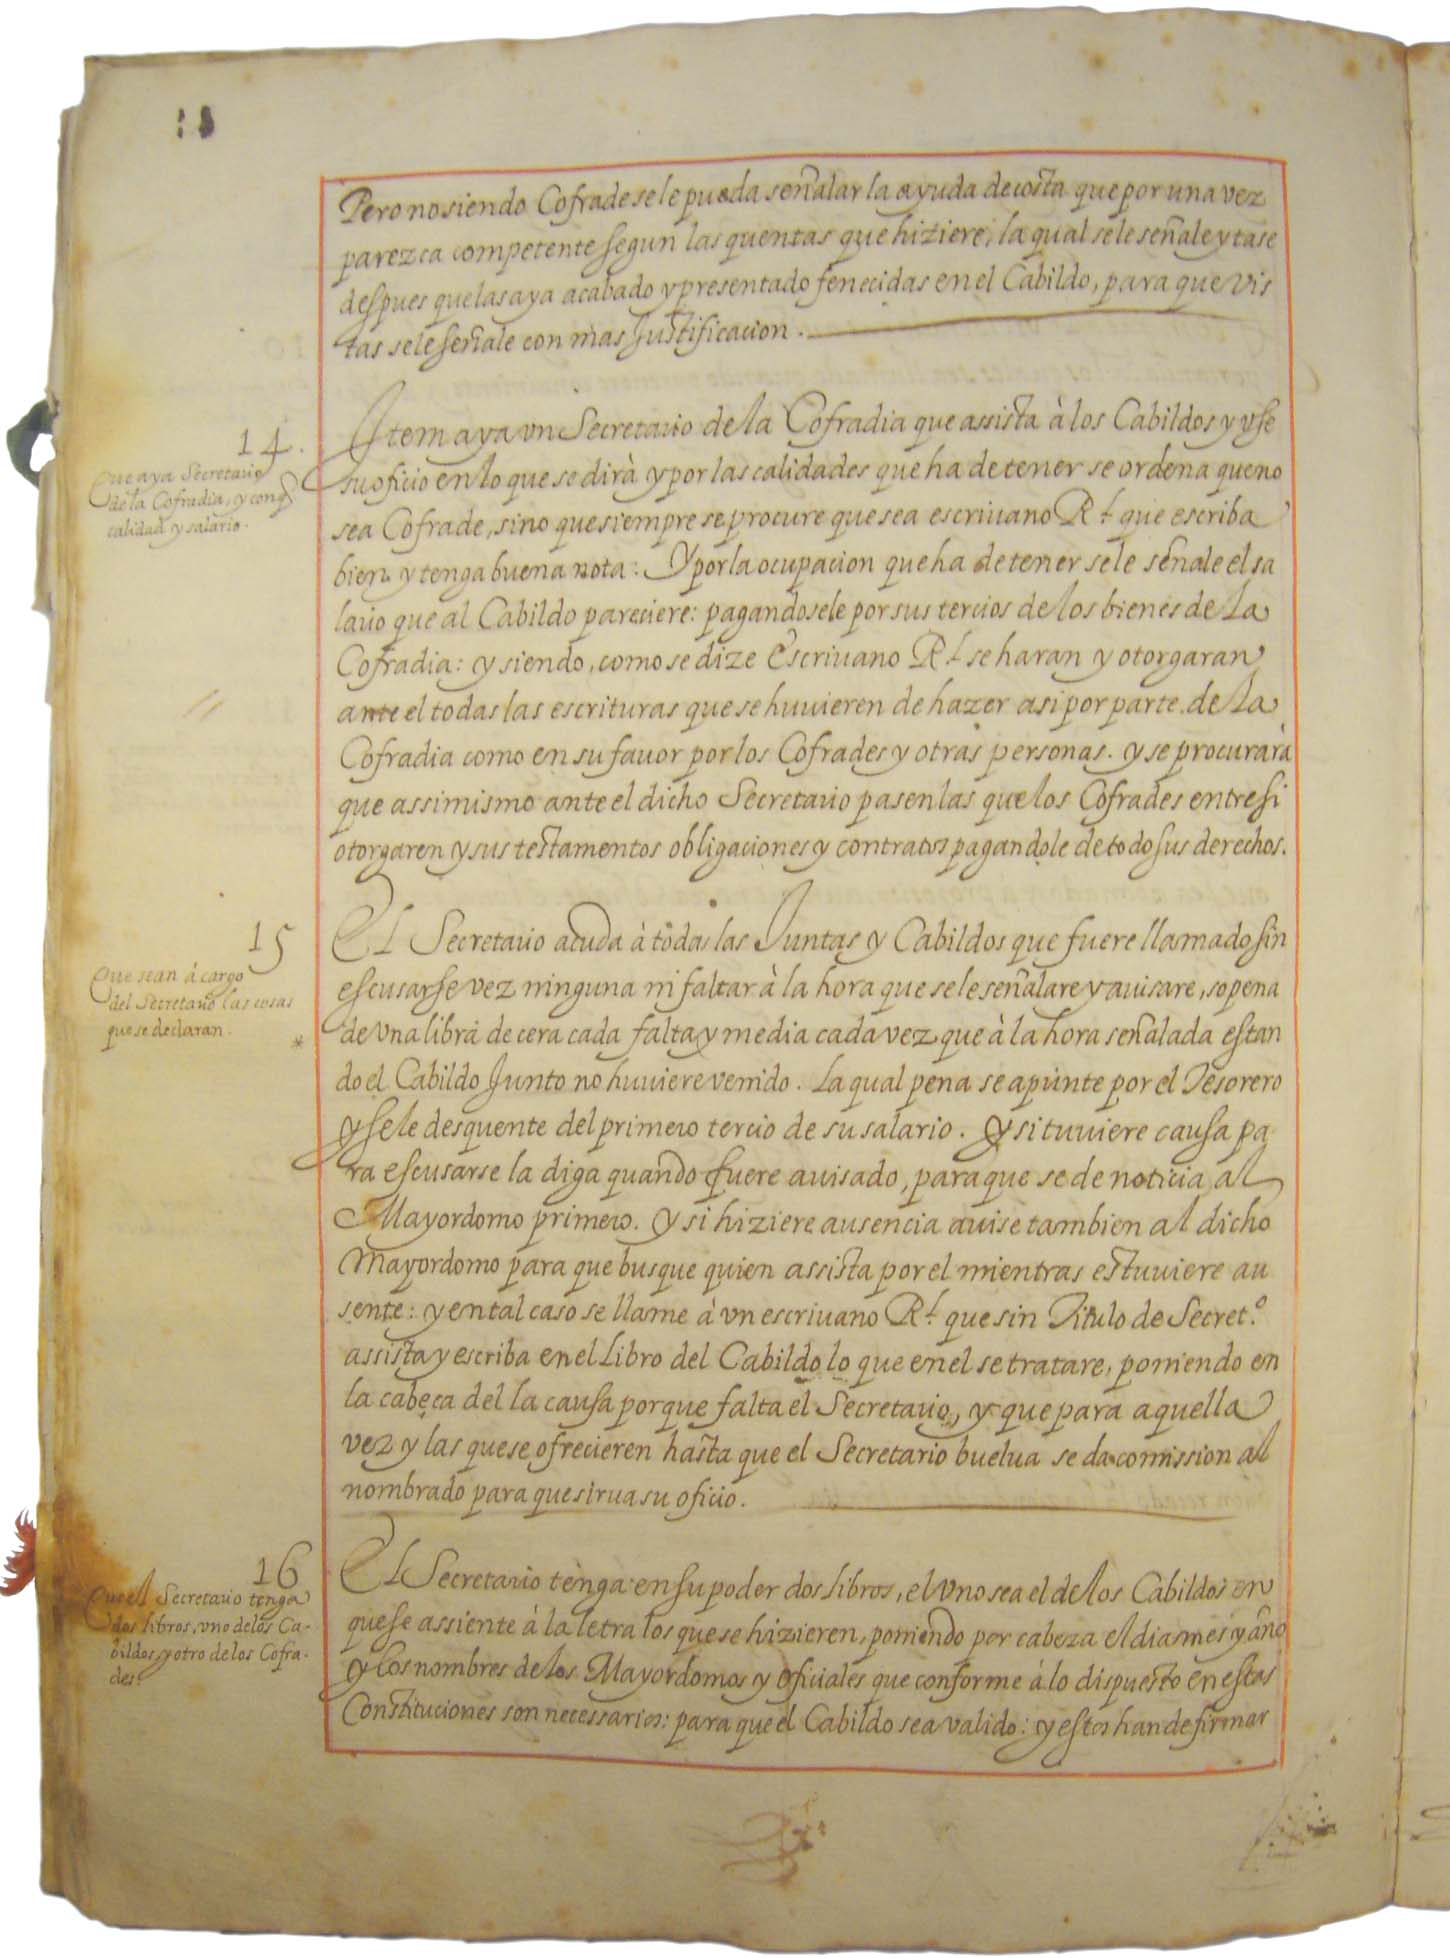 Pero no siendo Cofrade se le pueda señalar la ayuda de costa que por una vez
parezca competente segun las quentas que hiziere, la qual se le señale y tase
despues que las aya acabado y presentado fenecidas en el Cabildo, para que vis
tas se le señale con mas Justificacion.
14.
Que aya Secretario
de la Cofradia, y con q
calidad y salario.
Item aya vn Secretario de la Cofradia que assista à los Cabildos y vse
su oficio en lo que se dirà y por las calidades que ha de tener se ordena que no
sea Cofrade, sino que siempre se procure que sea escriuano Rl. que escriba
bien y tenga buena nota: Y por la ocupacion que ha de tener se le señale el sa
lario que al Cabildo pareciere: pagandosele por sus tercios de los bienes de la
Cofradia: y siendo, como se dize Escriuano Rl. se haran y otorgaran
ante el todas las escrituras que se huuieren de hazer asi por parte de la
Cofradia como en su fauor por los Cofrades y otras personas. y se procurarà
que assimismo ante el dicho Secretario pasen las que los Cofrades entre si
otorgaren y sus testamentos obligaciones y contratos pagandole de todo sus derechos.
15
Que sean à cargo
del Secretario las cosas
que se declaran.
El Secretario acuda à todas las Juntas y Cabildos que fuere llamado sin
escusarse vez ninguna ni faltar à la hora que se le señalare y auisare, so pena
de vna libra de cera cada falta y media cada vez que à la hora señalada estan
do el Cabildo Junto no huuiere venido. La qual pena se apunte por el Tesorero
y se le desquente del primero tercio de su salario. Y si tuuiere causa pa
ra escusarse la diga quando fuere auisado, para que se de noticia al
Mayordomo primero. Y si hiziere ausencia auise tambien al dicho
Mayordomo para que busque quien assista por el mientras estuuiere au
sente: y en tal caso se llame à vn escriuano Rl. que sin Titulo de Secret.º
assista y escriba en el Libro del Cabildo lo que en el se tratare, poniendo en
la cabeça del la causa porque falta el Secretario, y que para aquella
vez y las que se ofrecieren hasta que el Secretario buelua se da comission al
nombrado para que sirua su oficio.
16
Que el Secretario tenga
dos libros, vno de los Ca-
bildos, y otro de los Cofra-
des.
El Secretario tenga en su poder dos Libros, el vno sea el de los Cabildos en
que se assiente à la letra los que se hizieren, poniendo por cabeza el dia mes y año
y los nombres de los Mayordomos y Oficiales que conforme à lo dispuesto en estas
Constituciones son necessarios: para que el Cabildo sea valido: y estos han de firmar